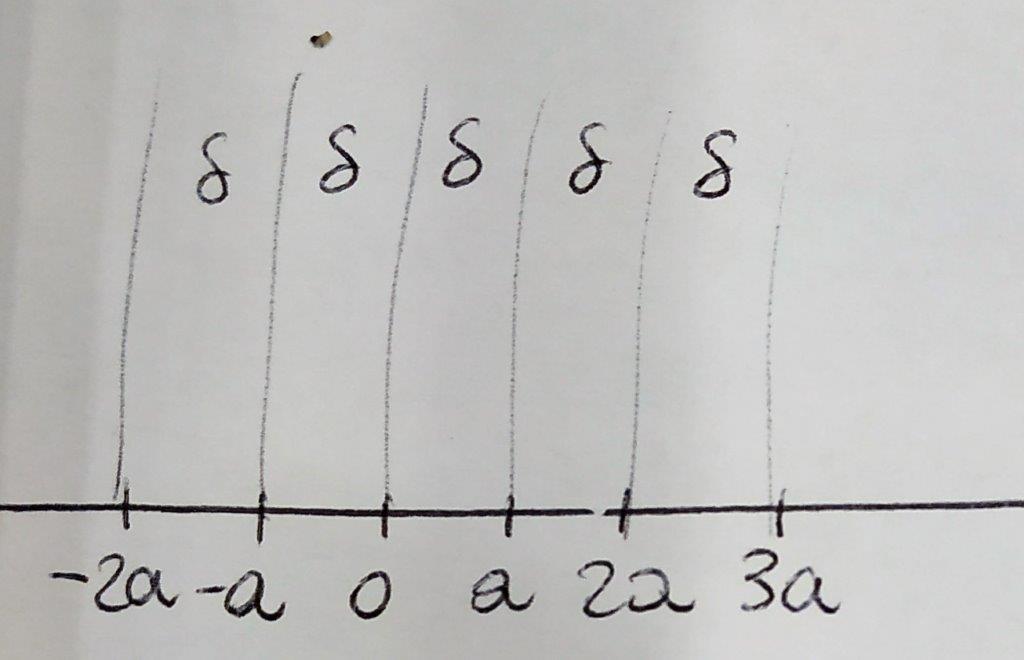 δ δ δ δ δ
-2a -a 0 a 2a 3a